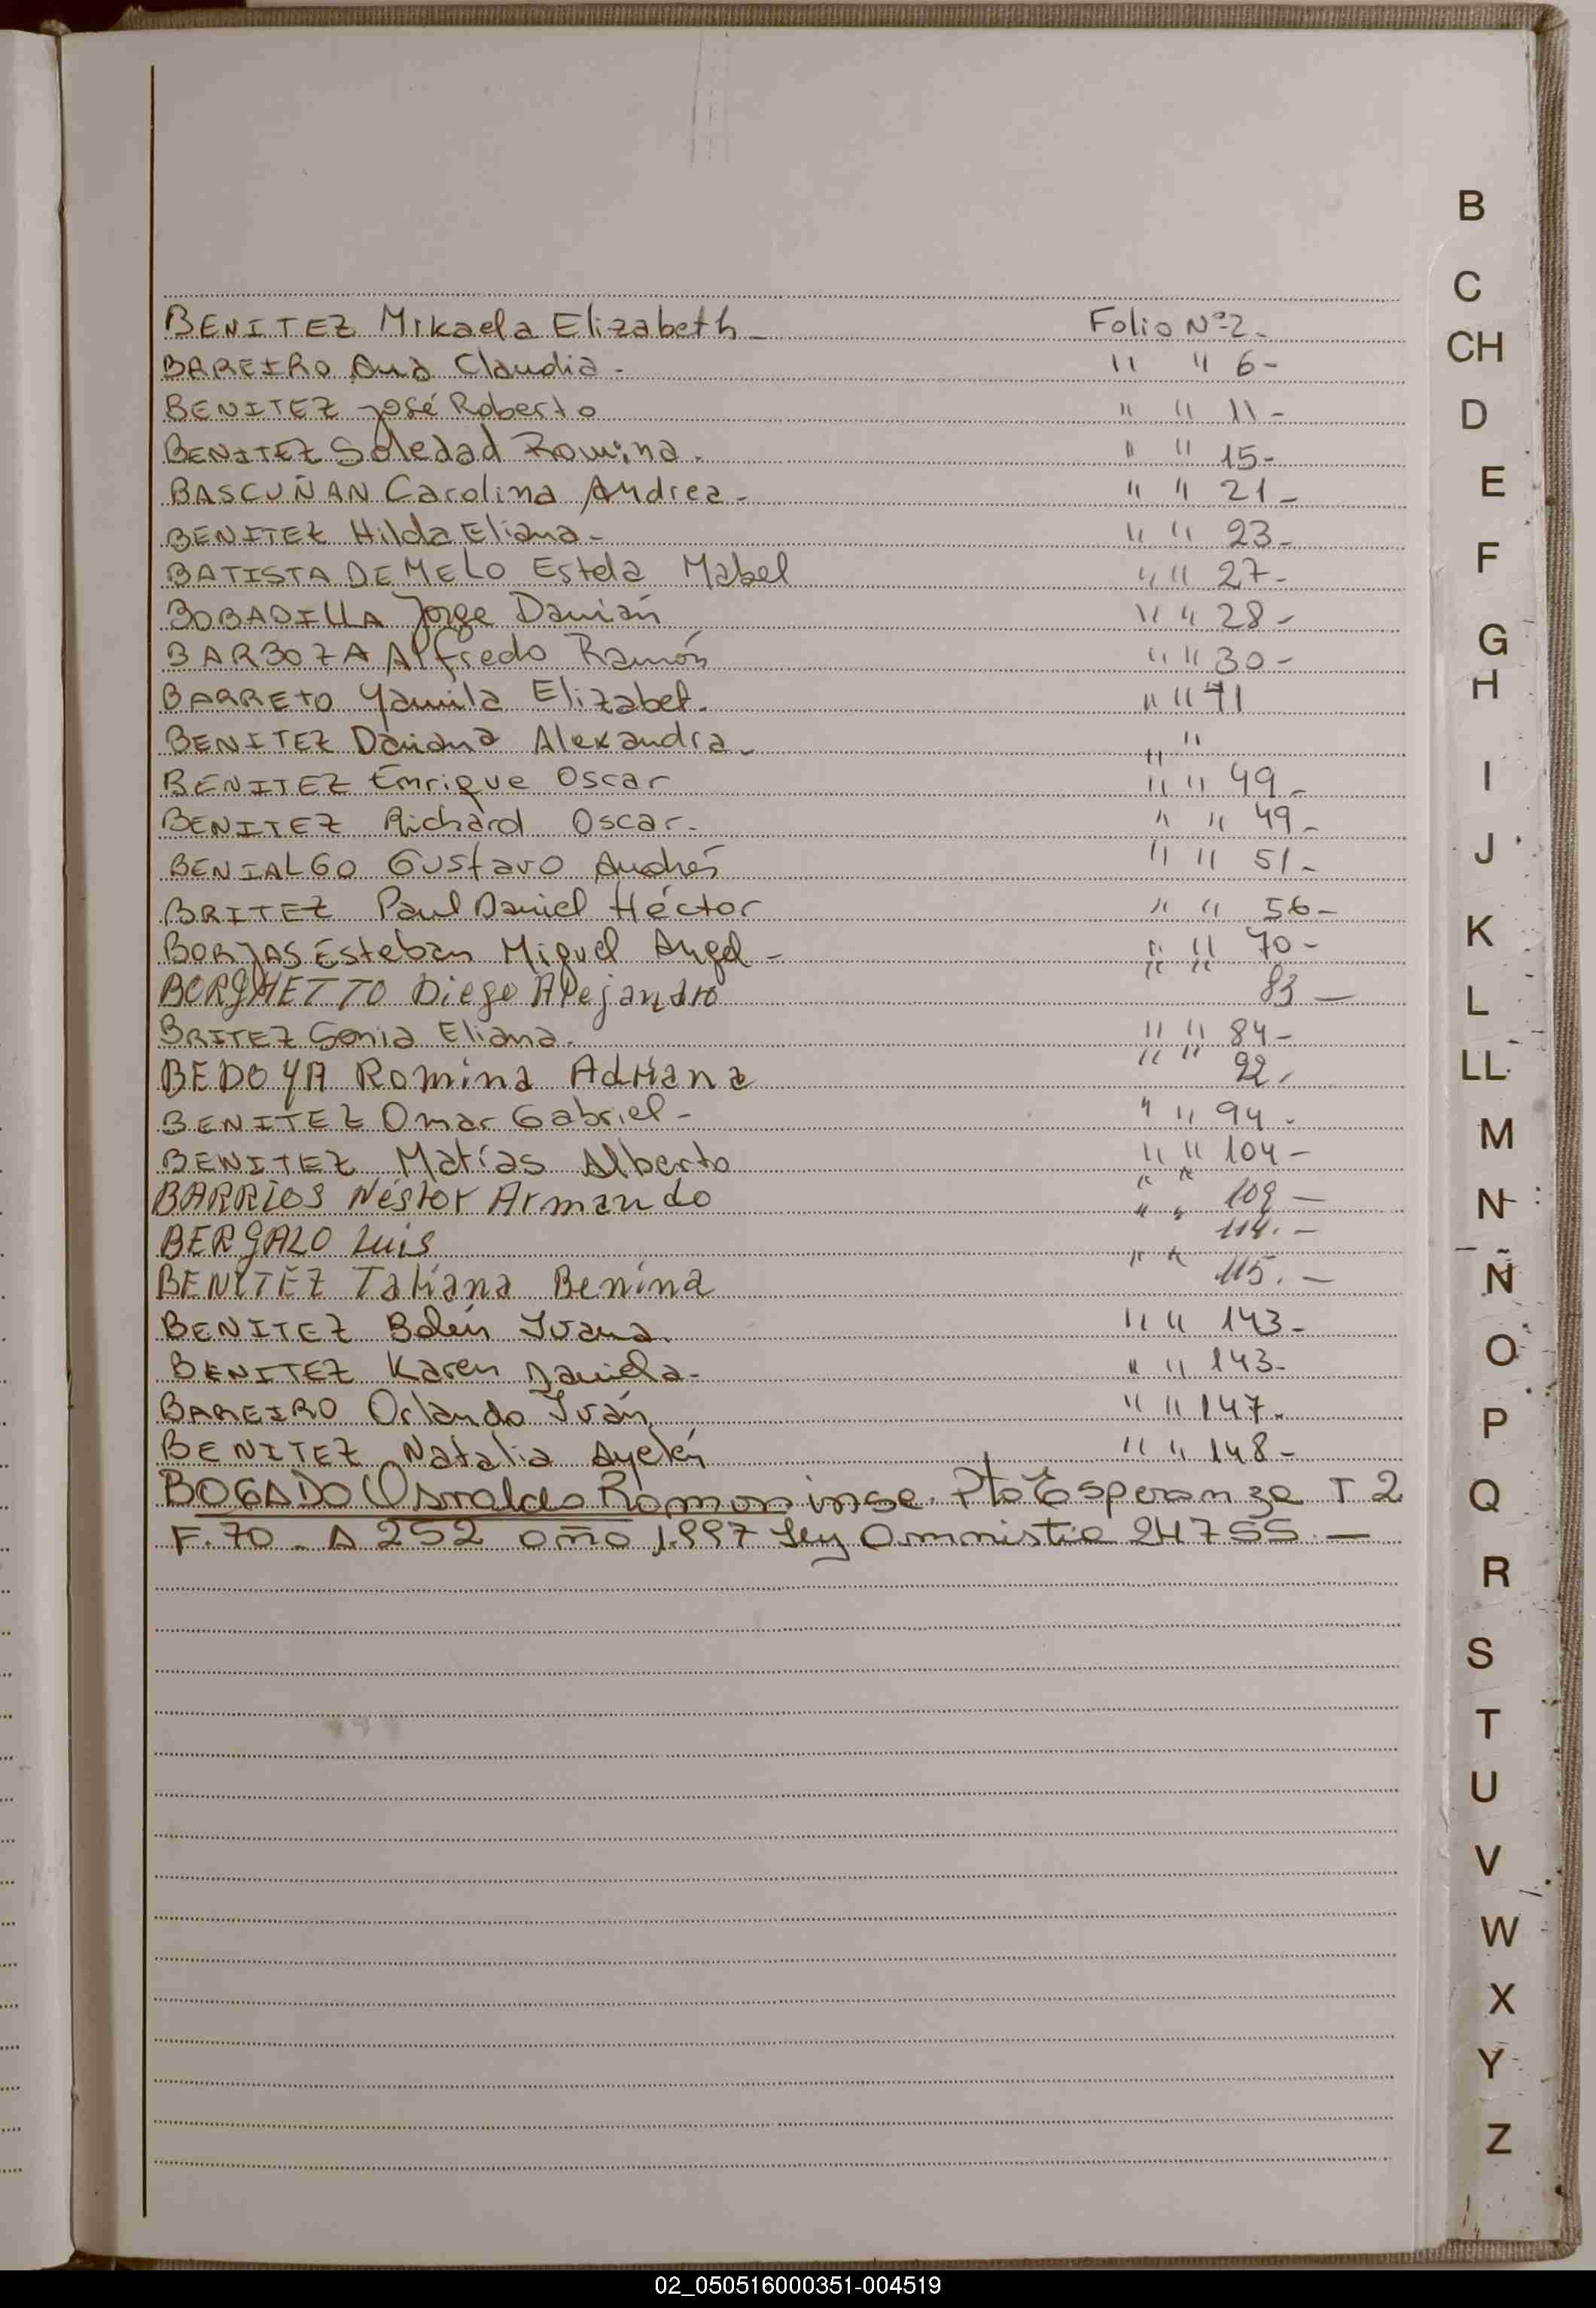 BENITEZ Mikaela Elizabeth - Folio Nº 2-
BAREIRO Ana Claudia - " " 6-
BENITEZ José Roberto " " 11-
BENITEZ Soledad Romina. " " 15-
BASCUÑAN Carolina Andrea - " " 21-
BENITEZ Hilda Eliana - " " 23-
BATISTA DE MELO Estela Mabel " " 27-
BOBADILLA Jorge Damián " " 28-
BARBOZA Alfredo Ramón " " 30-
BARRETO Yamila Elizabet. " " 41
BENITEZ Daiana Alexandra - " "
BENITEZ Enrique Oscar " " 49-
BENITEZ Richard Oscar - " " 49-
BENIALGO Gustavo Andrés " " 51-
BRITEZ Paul Daniel Héctor " " 56-
BORJAS Esteban Miguel Angel - " " 70-
BORGHETTO Diego Alejandro " " 83 —
BRITEZ Sonia Eliana. " " 84-
BEDOYA Romina Adriana " " 92-
BENITEZ Omar Gabriel - " " 94-
BENITEZ Matías Alberto " " 104-
BARRIOS Néstor Armando " " 109 —
BERGALO Luis " " 114. —
BENITEZ Tatiana Benina " " 115. —
BENITEZ Belén Ivana. " " 143-
BENITEZ Karen Daniela - " " 143-
BAREIRO Orlando Iván " " 147-
BENITEZ Natalia Ayelén " " 148-
BOGADO Osvaldo Ramon insc. Pto Esperanza T 2
F. 70 - A 252 año 1.997 Ley Amnistia 24755. —
B
C
CH
D
E
F
G
H
I
J
K
L
LL
M
N
Ñ
O
P
Q
R
S
T
U
V
W
X
Y
Z
02_050516000351-004519